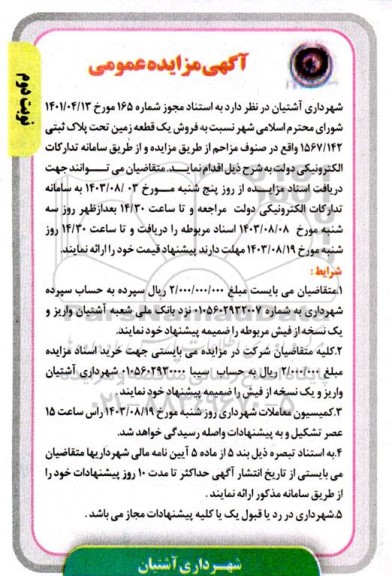 آگهی مزایده عمومی
نوبت دوم
شهرداری آشتیان در نظر دارد به استناد مجوز شماره ۱۶۵ مورخ ۱۴۰۱/۰۴/۱۳
شورای محترم اسلامی شهر نسبت به فروش یک قطعه زمین تحت پلاک ثبتی
۱۵۶۷/۱۴۲ واقع در صنوف مزاحم از طریق مزایده و از طریق سامانه تدارکات
الکترونیکی دولت به شرح ذیل اقدام نماید. متقاضیان می توانند جهت
دریافت اسناد مزایده از روز پنج شنبه مورخ ۱۴۰۳/۰۸/۰۳ به سامانه
تدارکات الکترونیکی دولت مراجعه و تا ساعت ۱۴/۳۰ بعدازظهر روز سه
شنبه مورخ ۱۴۰۳/۰۸/۰۸ اسناد مربوطه را دریافت و تا ساعت ۱۴/۳۰ روز
شنبه مورخ ۱۴۰۳/۰۸/۱۹ مهلت دارند پیشنهاد قیمت خود را ارائه نمایند.
شرایط :
۱.متقاضیان می بایست مبلغ ۲/۰۰۰/۰۰۰/۰۰۰ ریال سپرده به حساب سپرده
شهرداری به شماره ۰۱۰۵۶۰۲۹۲۲۰۰۷ نزد بانک ملی شعبه آشتیان واریز و
یک نسخه از فیش مربوطه را ضمیمه پیشنهاد خود نمایند.
۲.کلیه متقاضیان شرکت در مزایده می بایستی جهت خرید اسناد مزایده
مبلغ ۲/۰۰۰/۰۰۰ ریال به حساب سیبا ۰۱۰۵۶۰۲۹۳۰۰۰۰ شهرداری آشتیان
واریز و یک نسخه از فیش را ضمیمه پیشنهاد خود نمایند
۳.کمیسیون معاملات شهرداری روز شنبه مورخ ۱۴۰۳/۰۸/۱۹ راس ساعت ۱۵
عصر تشکیل و به پیشنهادات واصله رسیدگی خواهد شد.
۴.به استناد تبصره ذیل بند ۵ از ماده ۵ آیین نامه مالی شهرداریها متقاضیان
می بایستی از تاریخ انتشار آگهی حداکثر تا مدت ۱۰ روز پیشنهادات خود را
از طریق سامانه مذکور ارائه نمایند .
۵.شهرداری در رد یا قبول یک یا کلیه پیشنهادات مجاز می باشد .
شهرداری آشتیان